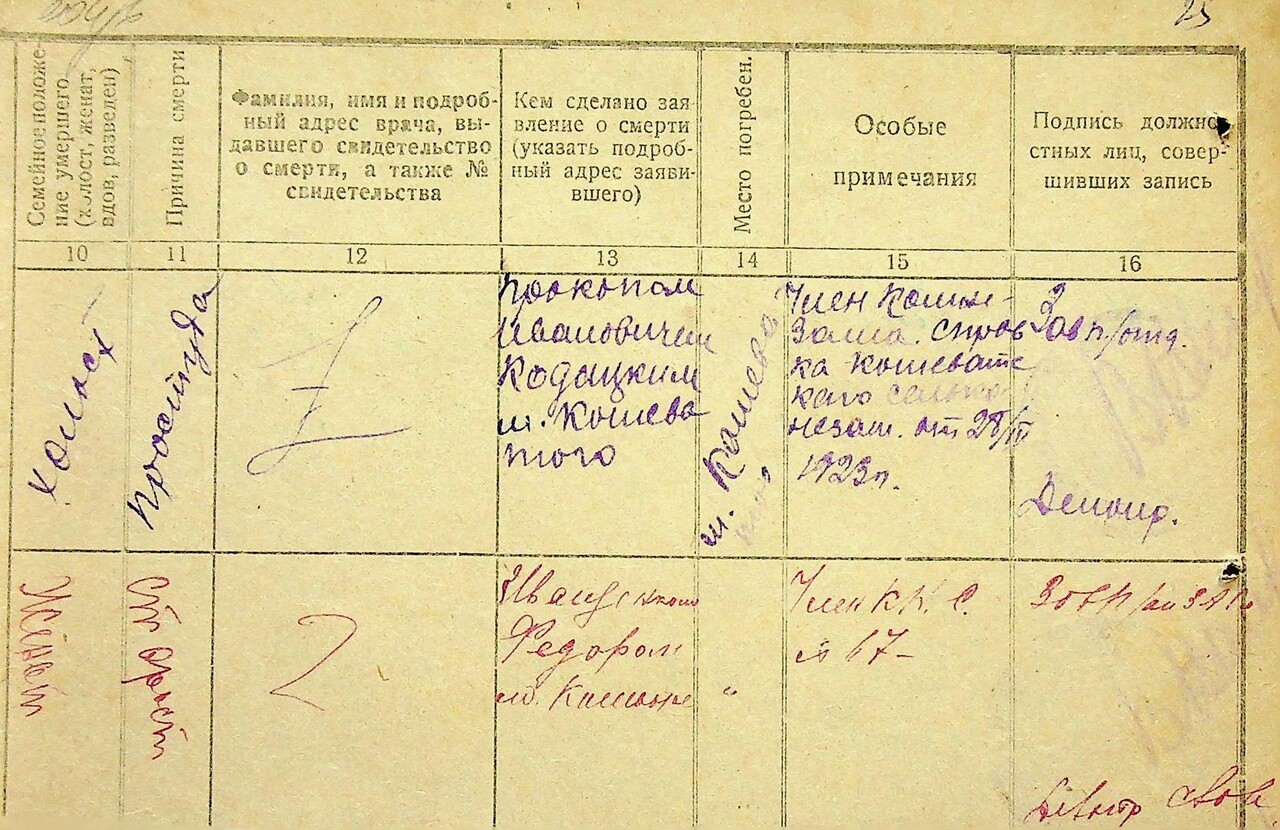 25
Семейное положе-
ние умершего
(холост, женат,
вдов, разведен)
Причина смерти
Фамилия, имя и подроб-
ный адрес врача, вы-
давшего свидетельство
о смерти, а также №
свидетельства
Кем сделано зая-
вление о смерти
(указать подроб-
ный адрес заяви-
вшего)
Место погребен.
Особые
примечания
Подпись должно-
стных лиц, совер-
шивших запись
10
11
12
13
14
15
16
Холост
Простуда
1
Прокопом
Ивановичем
Кодацким
м. Кошева
того
м. Кошева
Член Комн-
Зама. справ
ка Кошеватс
каго селько
незам. от 28/
1923 г.
Зав п/отд.
Женат
Старост
2
Федором
м.
"
Член К. Н. С.
№ 67-